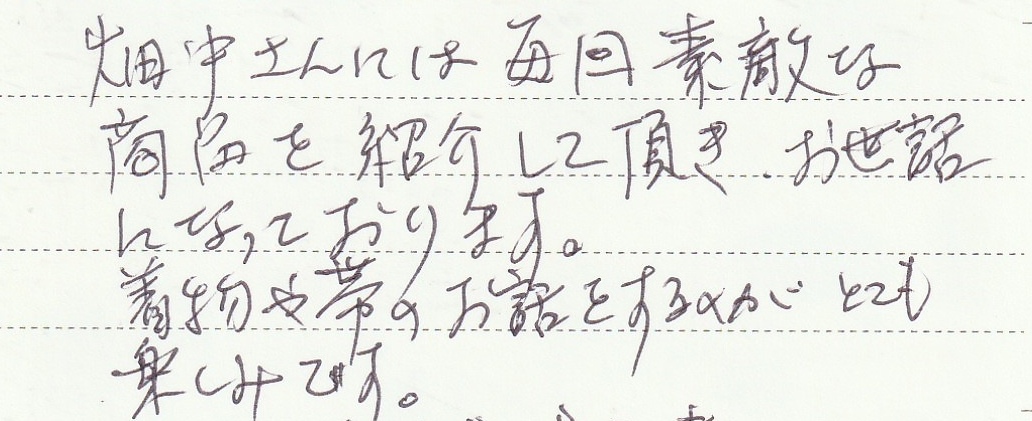 畑中さんには毎回素敵な
商品を紹介して頂き、お世話
になっております。
着物や帯のお話をするのがとても
楽しみです。